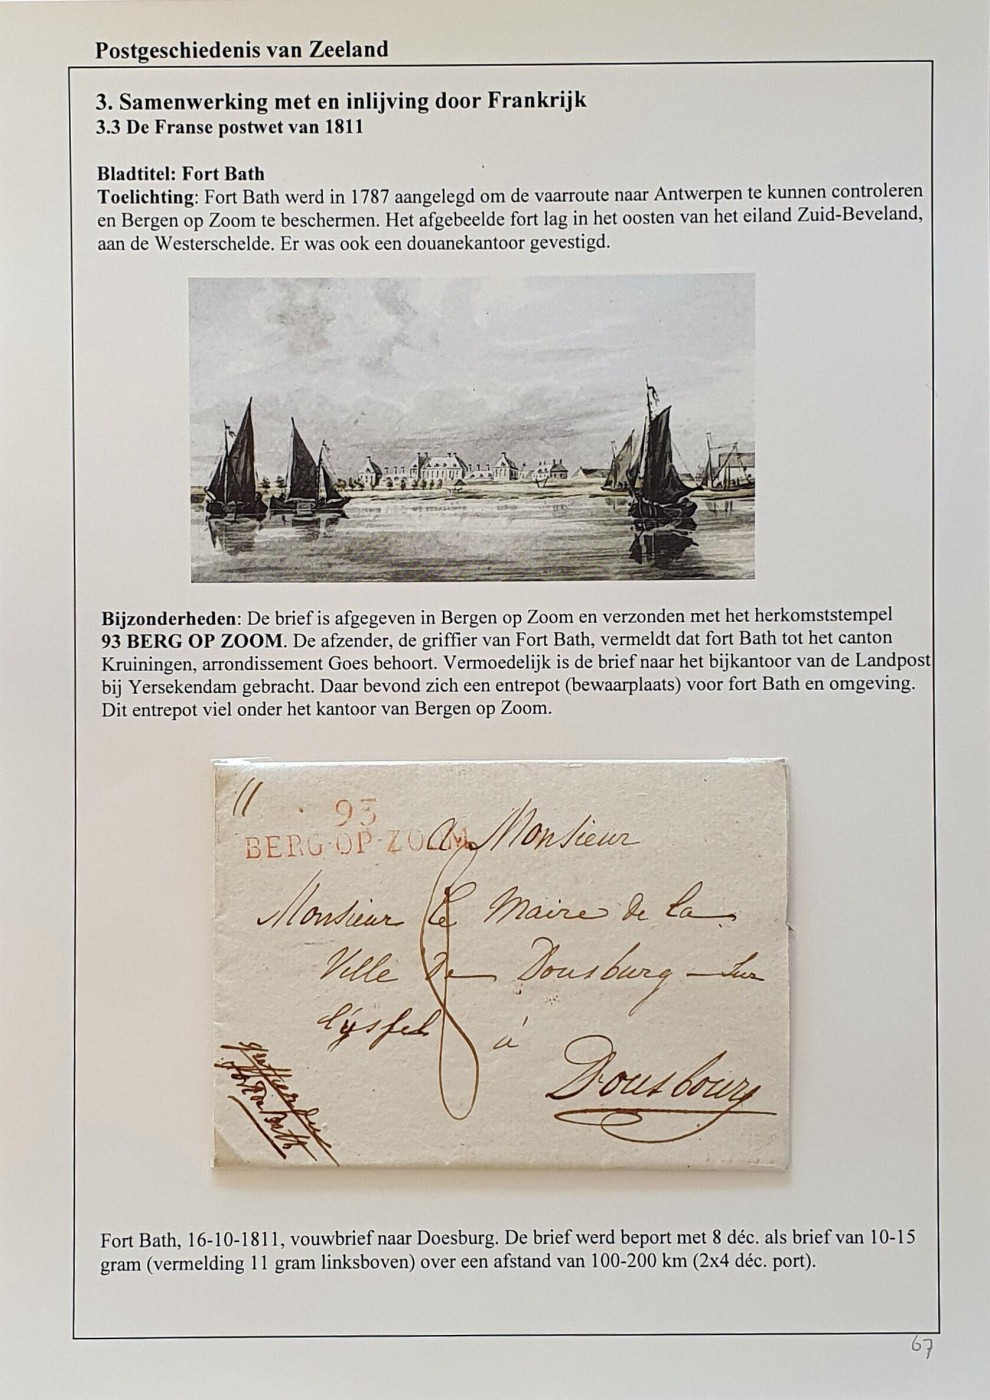 Postgeschiedenis van Zeeland
3. Samenwerking met en inlijving door Frankrijk
3.3 De Franse postwet van 1811
Bladtitel: Fort Bath
Toelichting: Fort Bath werd in 1787 aangelegd om de vaarroute naar Antwerpen te kunnen controleren
en Bergen op Zoom te beschermen. Het afgebeelde fort lag in het oosten van het eiland Zuid-Beveland,
aan de Westerschelde. Er was ook een douanekantoor gevestigd.
Bijzonderheden: De brief is afgegeven in Bergen op Zoom en verzonden met het herkomststempel
93 BERG OP ZOOM. De afzender, de griffier van Fort Bath, vermeldt dat fort Bath tot het canton
Kruiningen, arrondissement Goes behoort. Vermoedelijk is de brief naar het bijkantoor van de Landpost
bij Yersekendam gebracht. Daar bevond zich een entrepot (bewaarplaats) voor fort Bath en omgeving.
Dit entrepot viel onder het kantoor van Bergen op Zoom.
11
93
BERG-OP-ZOOM
A Monsieur
Monsieur le Maire de la
Ville de Dousburg - Sur
l'ijssel
à
Dousbourg
8
griffier du
fort de Bath
Fort Bath, 16-10-1811, vouwbrief naar Doesburg. De brief werd beport met 8 déc. als brief van 10-15
gram (vermelding 11 gram linksboven) over een afstand van 100-200 km (2x4 déc. port).
67